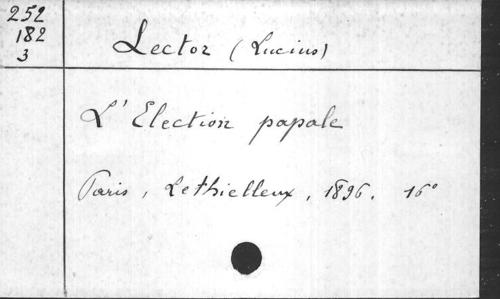 252
182
3
Lector (Lucius)
L'Election papale
Paris, Lethielleux, 1896. 16°